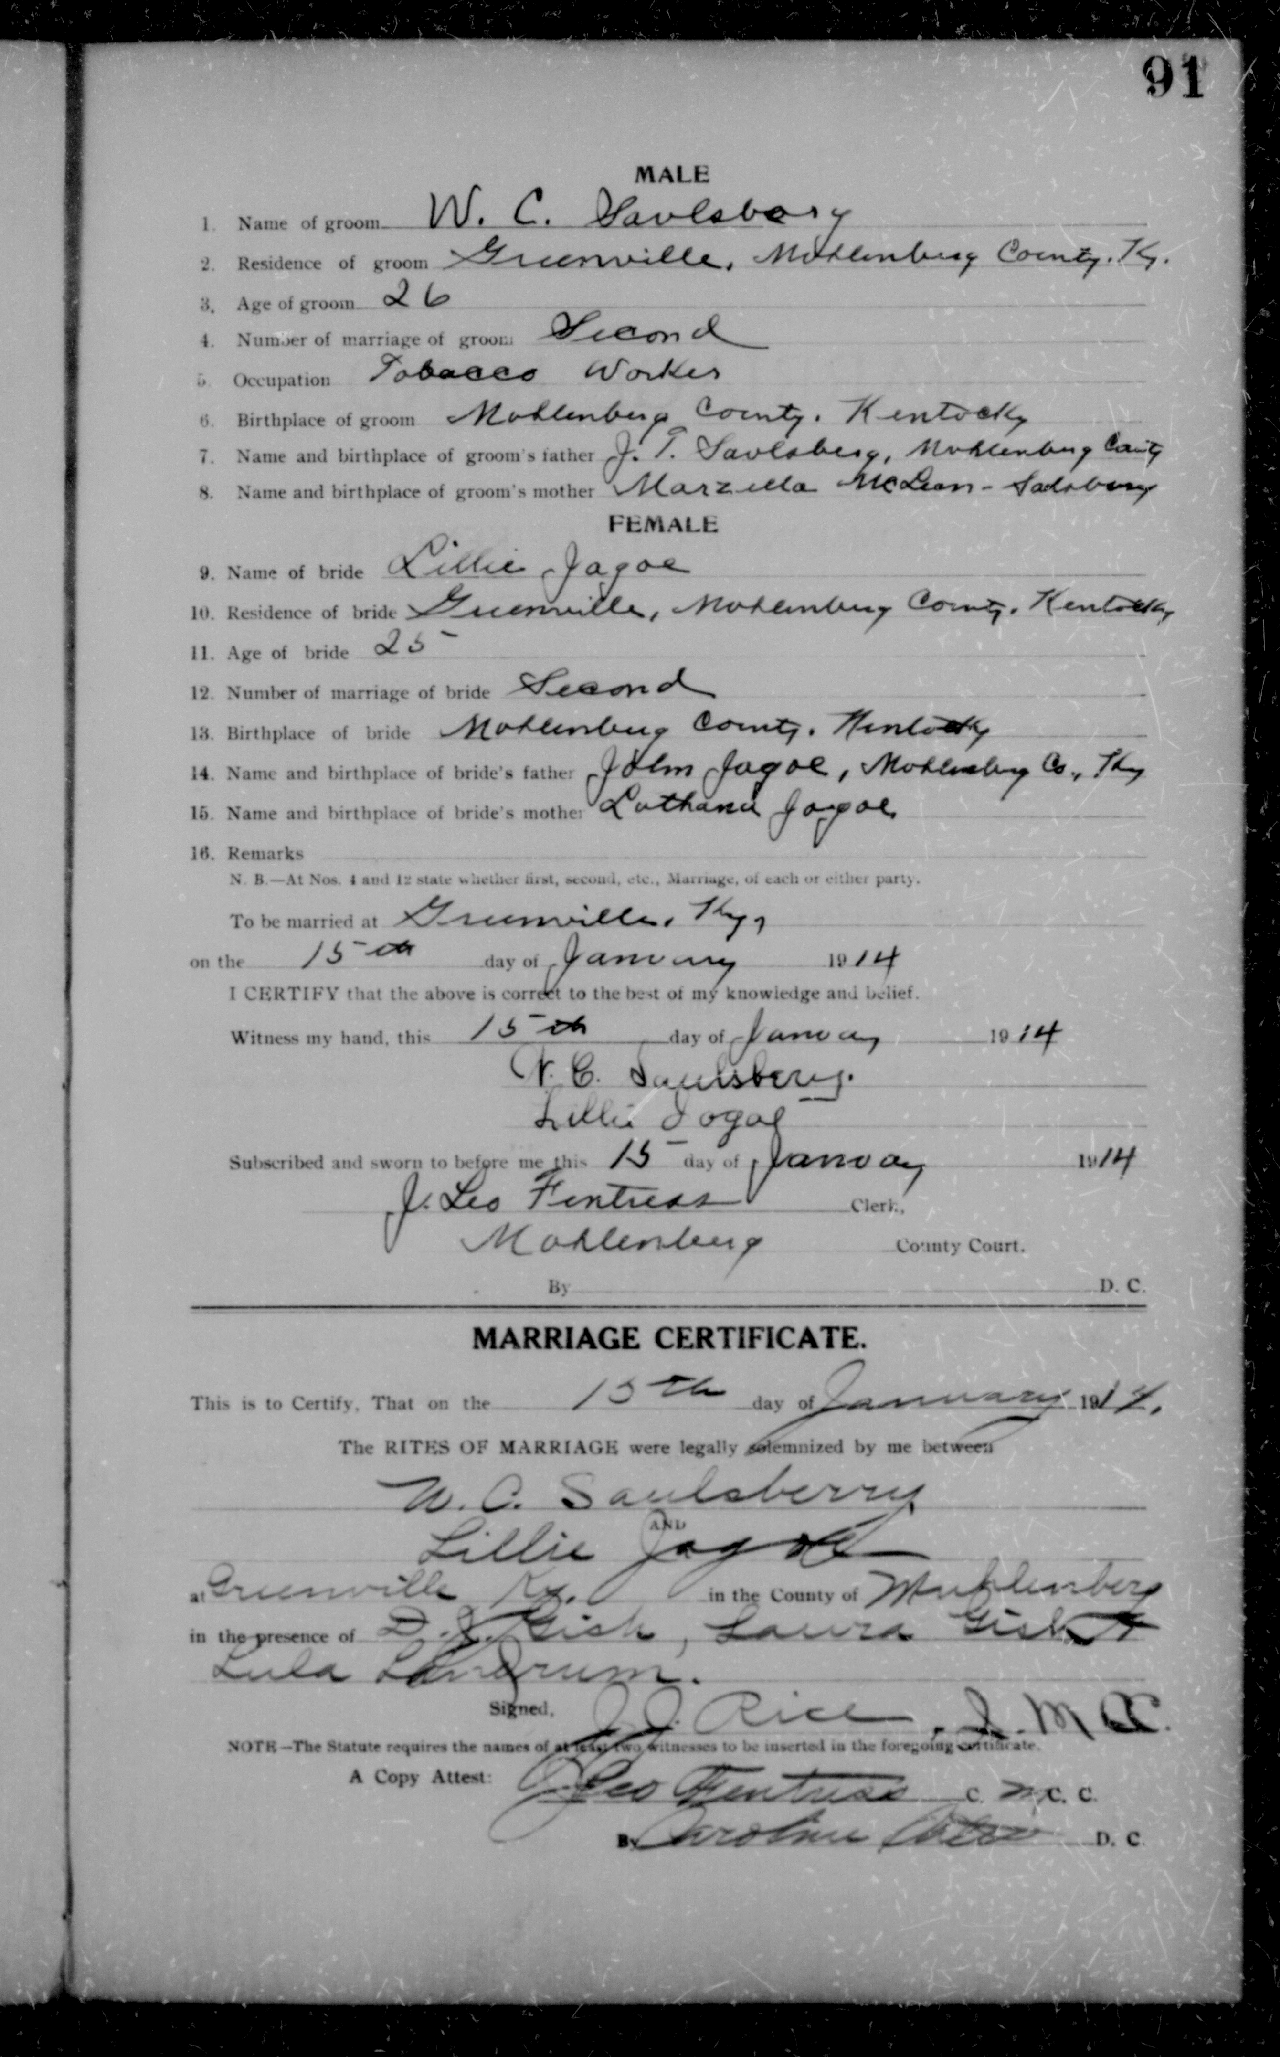 91
MALE
1. Name of groom W. C. Saulsbery
2. Residence of groom Greenville, Muhlenburg County, Ky.
3. Age of groom 26
4. Number of marriage of groom Second
5. Occupation Tobacco Worker
6. Birthplace of groom Muhlenburg County, Kentucky
7. Name and birthplace of groom's father J. T. Saulsbery, Muhlenburg County
8. Name and birthplace of groom's mother Marzella McLean - Salsbury
FEMALE
9. Name of bride Lillie Jagoe
10. Residence of bride Greenville, Muhlenburg County, Kentucky
11. Age of bride 25
12. Number of marriage of bride Second
13. Birthplace of bride Muhlenburg County, Kentucky
14. Name and birthplace of bride's father John Jagoe, Muhlenburg Co., Ky
15. Name and birthplace of bride's mother Jagoe
16. Remarks
N. B.—At Nos. 4 and 12 state whether first, second, etc., Marriage, of each or either party.
To be married at Greenville, Ky,
on the 15th day of January 1914
I CERTIFY that the above is correct to the best of my knowledge and belief.
Witness my hand, this 15th day of January 1914
W. C. Saulsbery.
Lillie Jogoe
Subscribed and sworn to before me this 15 day of January 1914
J. Leo Fentress Clerk,
Muhlenburg County Court.
By D. C.
MARRIAGE CERTIFICATE.
This is to Certify, That on the 15th day of January 1914.
The RITES OF MARRIAGE were legally solemnized by me between
W. C. Saulsberry
AND
Lillie Jagoe
at Greenville Ky. in the County of Muhlenberg
in the presence of D. J. Gish, Laura Gish &
Lula Landrum.
Signed, J. J. Rice, J. M. C.
NOTE—The Statute requires the names of at least two witnesses to be inserted in the foregoing certificate.
A Copy Attest: J Leo Fentress C. M. C. C.
By Caroline D. C.